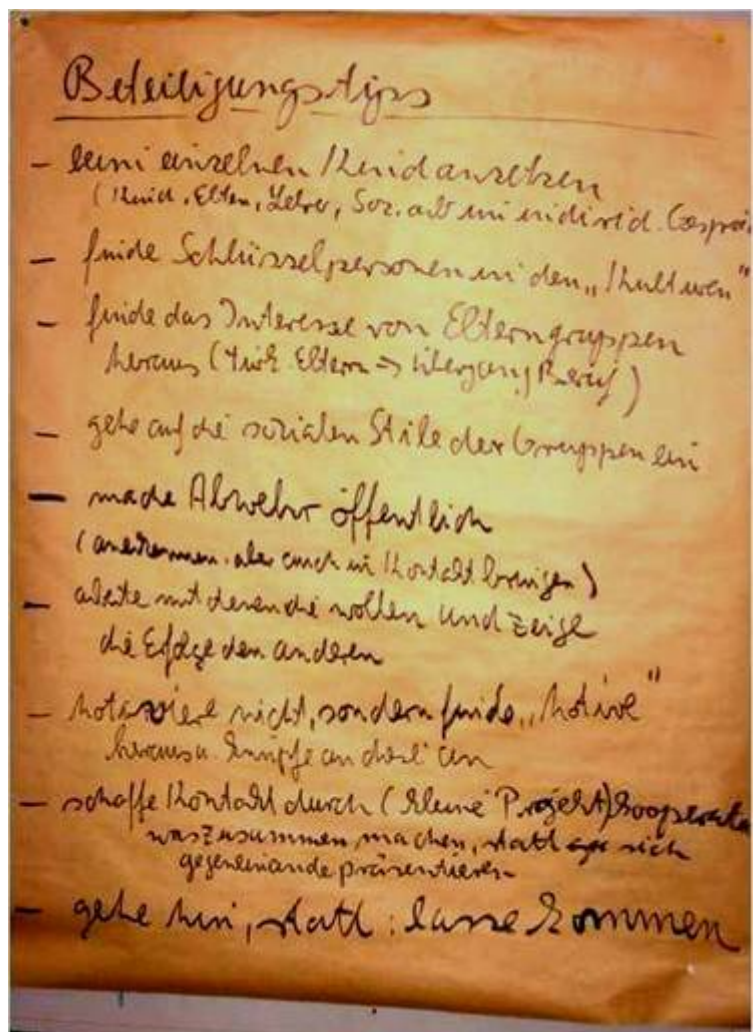 Beteiligungstips
- beim einzelnen Kind ansetzen
(Kind, Eltern, Lehrer, Soz.arb im individ. Gesprä
- finde Schlüsselpersonen in den „Kulturen"
- finde das Interesse von Elterngruppen
heraus (türk. Eltern => Übergang Beruf)
- gehe auf die sozialen Stile der Gruppen ein
- mache Abwehr öffentlich
(anerkennen, aber auch in Kontakt bringen)
- arbeite mit denen die wollen und zeige
die Erfolge den anderen
- nicht, sondern finde „Motive"
heraus u. knüpfe an
- schaffe Kontakt durch (kleine Projekt) Kooperat
was zusammen machen, statt sich
gegeneinande präsentieren
- gehe hin, statt: lasse kommen